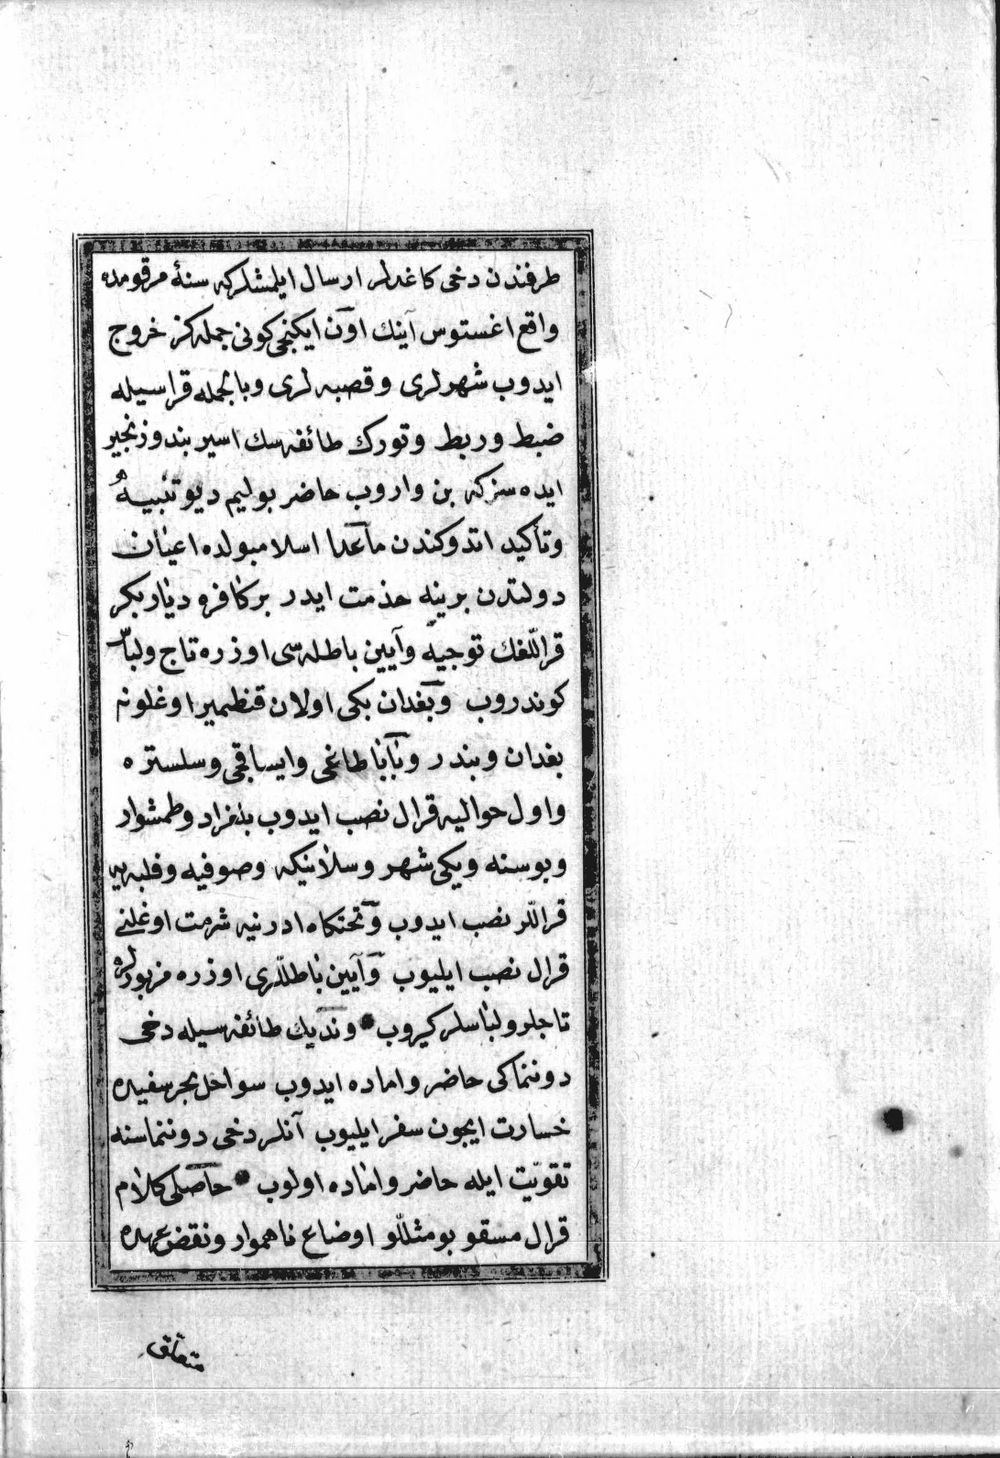 طرفندن دخی کاغدلر ارسال ایلمشلرکه سنهٔ مرقومده
واقع اغستوس آینك اون ایکنجی کونی جمله‌کز خروج
ایدوب شهرلری و قصبه‌لری وبالجمله قراسیله
ضبط وربط وتورك طائفه‌سك اسیر بندوزنجیر
ایده‌سز که بن واروب حاضر بولیم دیو تنبیه
وتأکید اتدوکندن ماعدا اسلامبولده اعیان
دولتدن برینه خذمت ایدر برکافره دیاربکر
قراللغك توجیه وآیین باطله‌سی اوزره تاج ولباس
کوندروب وبغدان بکی اولان قنطمیر اوغلونه
بغدان وبندر وبابا طاغی وایساقجی وسلستره
واول حوالیه قرال نصب ایدوب بلغراد وطمشوار
وبوسنه ویکی شهر وسلانیکه وصوفیه وفلبه‌یه
قراللر نصب ایدوب وتختکاه ادرنیه شرمت اوغلنی
قرال نصب ایلیوب وآیین باطللری اوزره مزبورلره
تاجلر ولباسلر کیروب وندیك طائفه‌سیله دخی
دوننماکی حاضر واماده ایدوب سواحل بحر سفیده
خسارت ایچون سفر ایلیوب آنلر دخی دوننماسنه
تقویت ایله حاضر واماده اولوب حاصلی کلام
قرال مسقو بومثللو اوضاع ناهموار ونقض عهده
متعلق